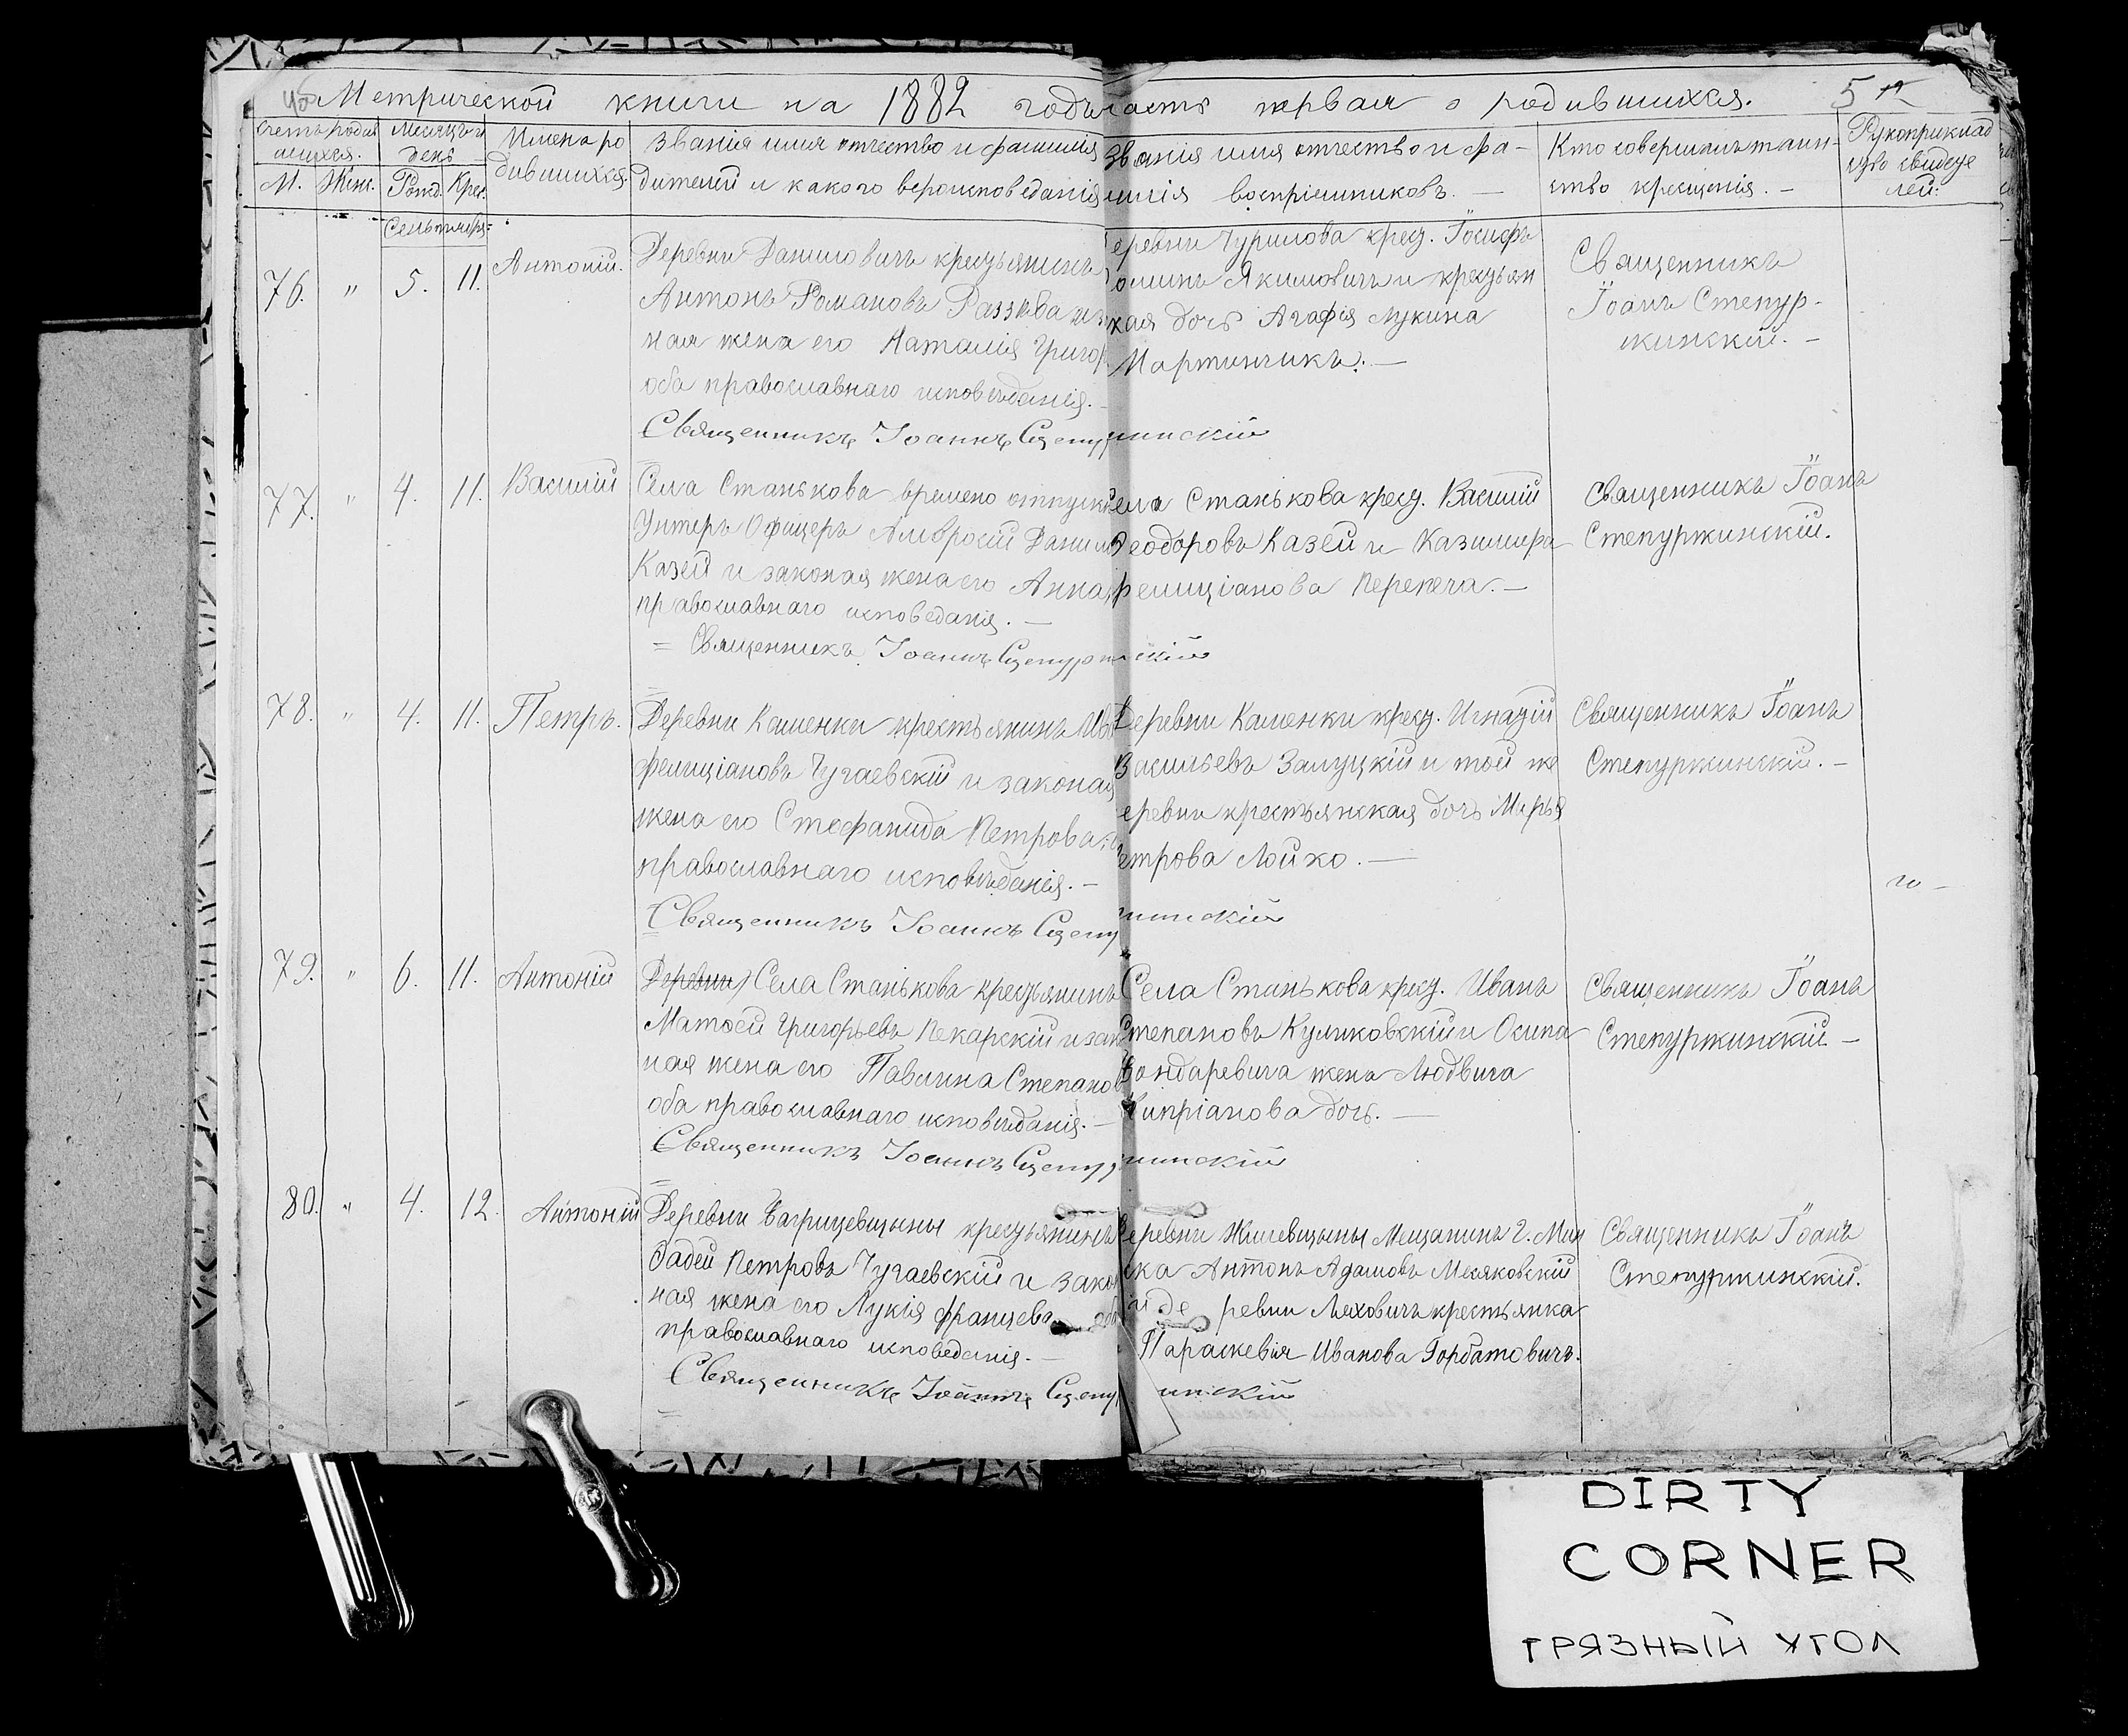 Метрической книги на 1882 годъ часть первая о родившихся.
Счетъ родив
шихся.
М. Жен.
Месяцъ и
день
Рожд. Крес.
Имена ро
дившихся.
Званія имя отчество и фамилія
дителей и какого вероисповеданія
Званія имя отчество и фа-
милія воспріемниковъ. —
Кто совершалъ таин-
ство крещенія. —
Рукоприклад
ство свидете
лей:
Сентября
76. " 5. 11. Антоній.
Деревни Даниловичъ крестьянинъ
Антонъ Романовъ
ная жена его Наталия Григор
оба православнаго исповѣданія. —
Священникъ Іоаннъ Сцепур
жинскій
еревни Чурилова крест. Іосифъ
Якимовичъ и крестьян
кая дочь Агафія Лукина
Мартинчикъ. —
Священникъ
Іоанъ Степур-
жинскій. —
77. " 4. 11. Василій
Села Станькова времено отпуск
Унтеръ Офицеръ Амвросій Данил
Казей и законая жена его Анна
православнаго исповеданія. —
= Священникъ Іоаннъ Сцепурж
скій
ела Станькова крест. Василій
Ѳеодоровъ Казей и Казимира
Фелиціанова Перепеча. —
Священникъ Іоанъ
Степуржинскій.
78. " 4. 11. Петръ.
Деревни Каменки крестьянинъ
Фелиціановъ Чугаевскій и законая
жена его Стефанида Петрова
православнаго исповѣданія. —
Священникъ Іоаннъ Сцепу
жинскій
еревни Каменки крест. Игнатій
Васильевъ Залуцкій и той же
еревни крестьянская дочь Марья
етрова Лойко. —
Священникъ Іоанъ
Степуржинскій. —
го —
79. " 6. 11. Антоній
Деревни Села Станькова крестьянинъ
Матѳей Григорьевъ Пекарскій и зак
ная жена его Павлина Степанов
оба православнаго исповѣданія. —
Священникъ Іоаннъ Сцепур
жинскій
Села Станькова крест. Иванъ
Степановъ Куликовскій и Осипа
Бондаревича жена Людвига
Кипріанова дочь. —
Священникъ Іоанъ
Степуржинскій —
80. " 4. 12. Антоній
Деревни Багрицевщины крестьянинъ
Фадей Петровъ Чугаевскій и закон
ная жена его Лукія Францева оба
православнаго исповеданія. —
Священникъ Іоаннъ Сцепу
инскій
еревни Жилевщины Мещанинъ г. Мин
ска Антонъ Адамовъ Мисяковскій
и деревни Ляховичъ крестьянка
Параскевія Иванова Горбатовичъ.
Священникъ Іоанъ
Степуржинскій.
DIRTY
CORNER
ГРЯЗНЫЙ УГОЛ